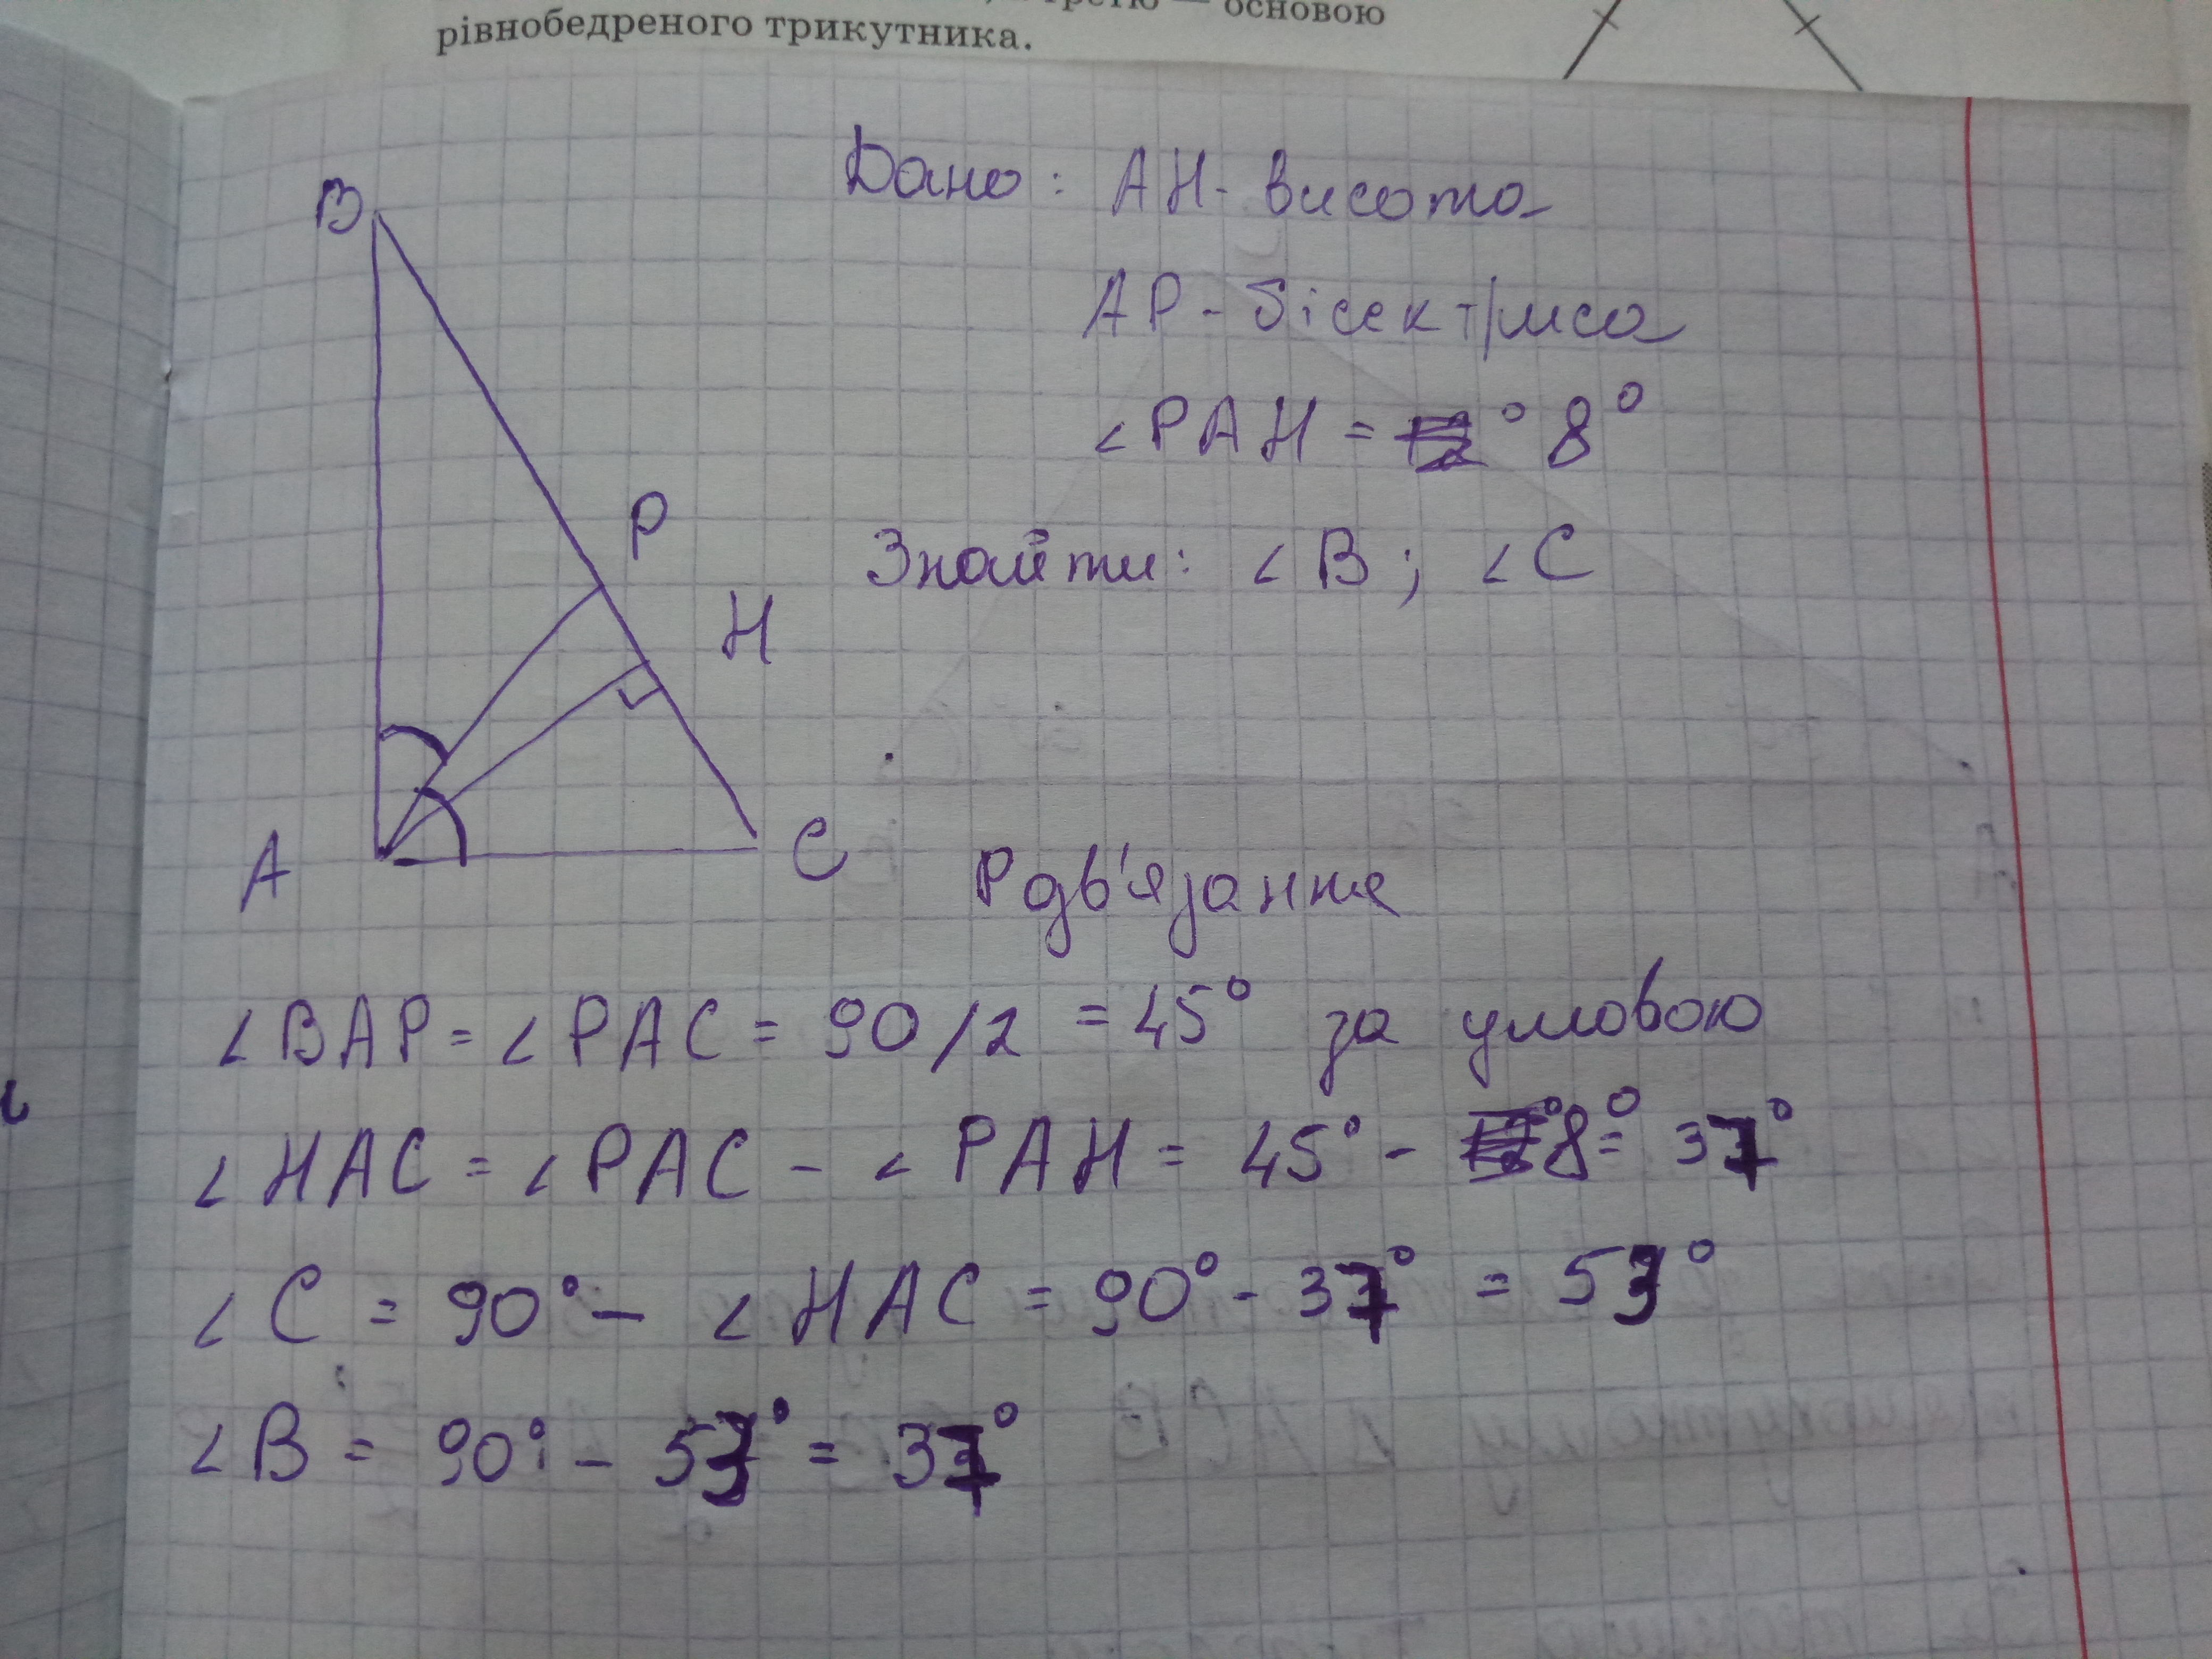 основою
рівнобедреного трикутника.
Дано: AH - висота
AP - бісектриса
∠PAH = ° 8°
Знайти: ∠B; ∠C
B
P
H
A
C
Розв'язання
∠BAP = ∠PAC = 90/2 = 45° за умовою
∠HAC = ∠PAC - ∠PAH = 45° - 8° = 37°
∠C = 90° - ∠HAC = 90° - 37° = 53°
∠B = 90° - 53° = 37°